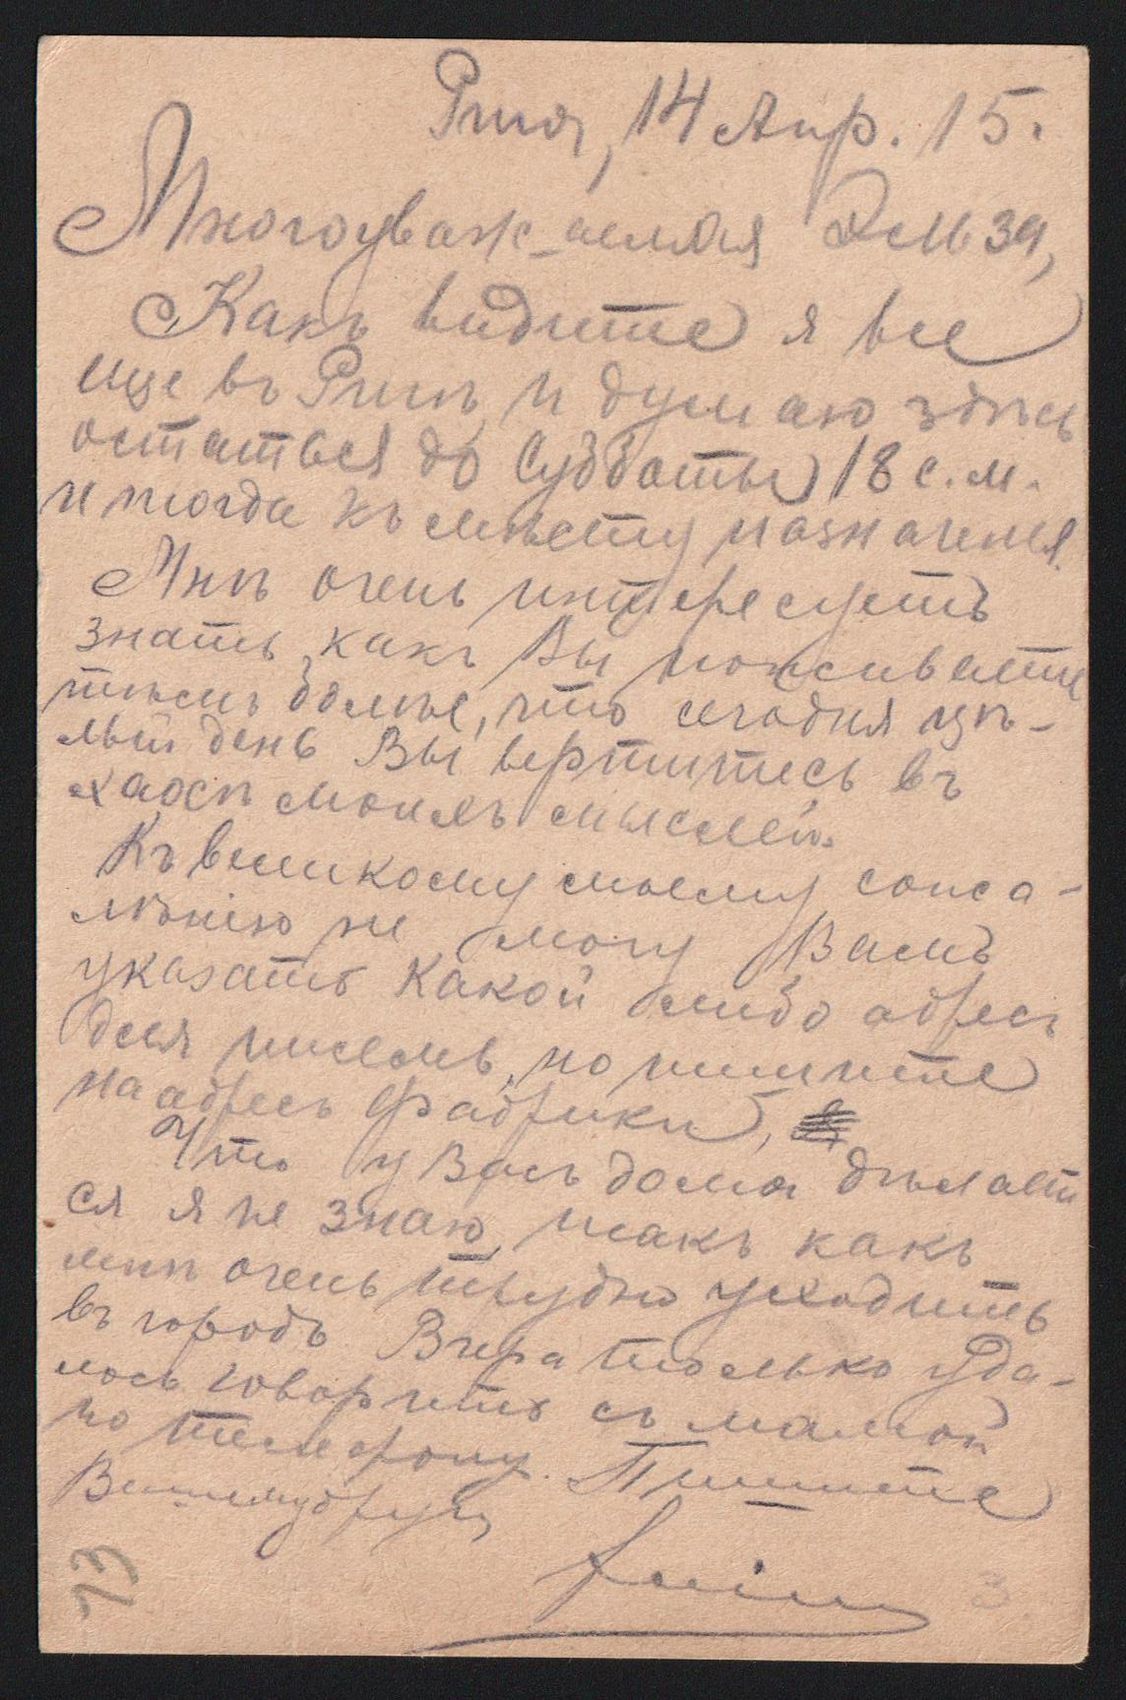 Рига, 14 Апр. 15.
Многоуваж-аемая Эльза,
Какъ видите я все
еще въ Ригѣ и думаю здѣсь
остаться до Субботы 18 с.м.
и тогда къ мѣсту назначенія.
Мнѣ очень интересуетъ
знать, какъ Вы поживаете
тѣмъ болѣе, что сегодня цѣ-
лый день Вы вертитесь въ
хаосѣ моихъ мыслей.
Къ великому моему сожа-
лѣнію не могу Вамъ
указать какой либо адресъ
для писемъ, но пишите
на адресъ фабрики,
Что у Васъ дома дѣлает
ся я не знаю, такъ какъ
мнѣ очень трудно уходить
въ городъ Вчера только уда-
лось говорить съ мамой
по телефону. Пишите
Вашему другу
73
3